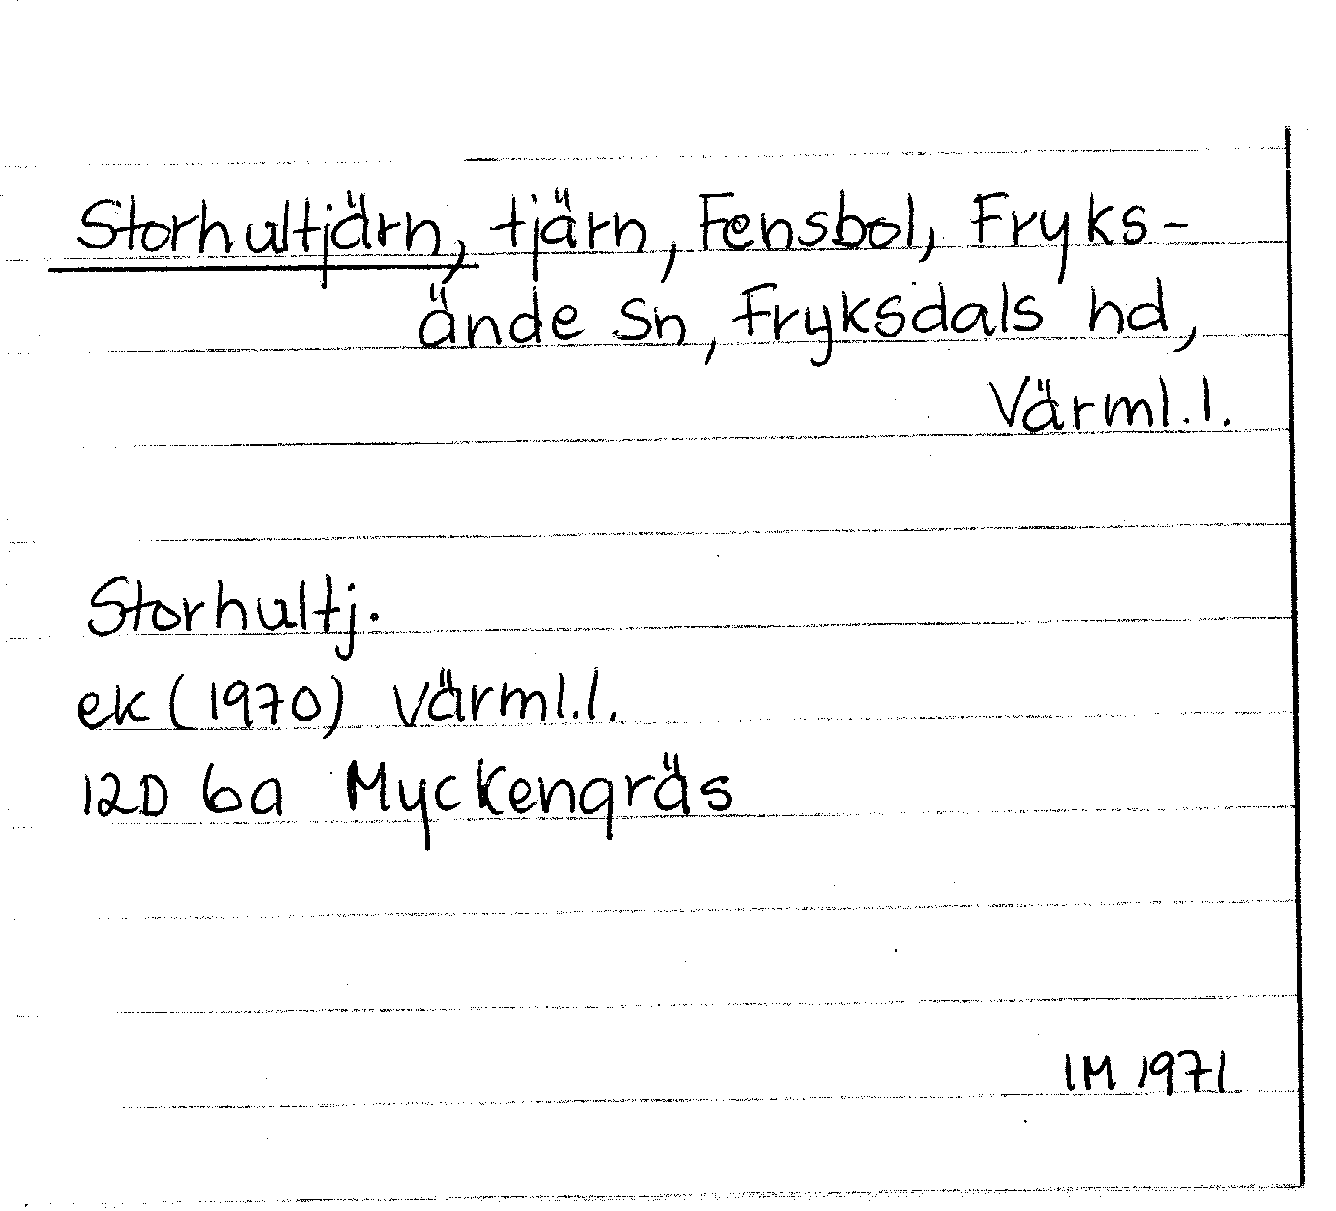 Storhultjärn, tjärn, Fensbol, Fryks-
ände sn, Fryksdals hd,
Värml.l.
Storhultj.
ek (1970) Värml.l.
12D 6a Myckengräs
IM 1971